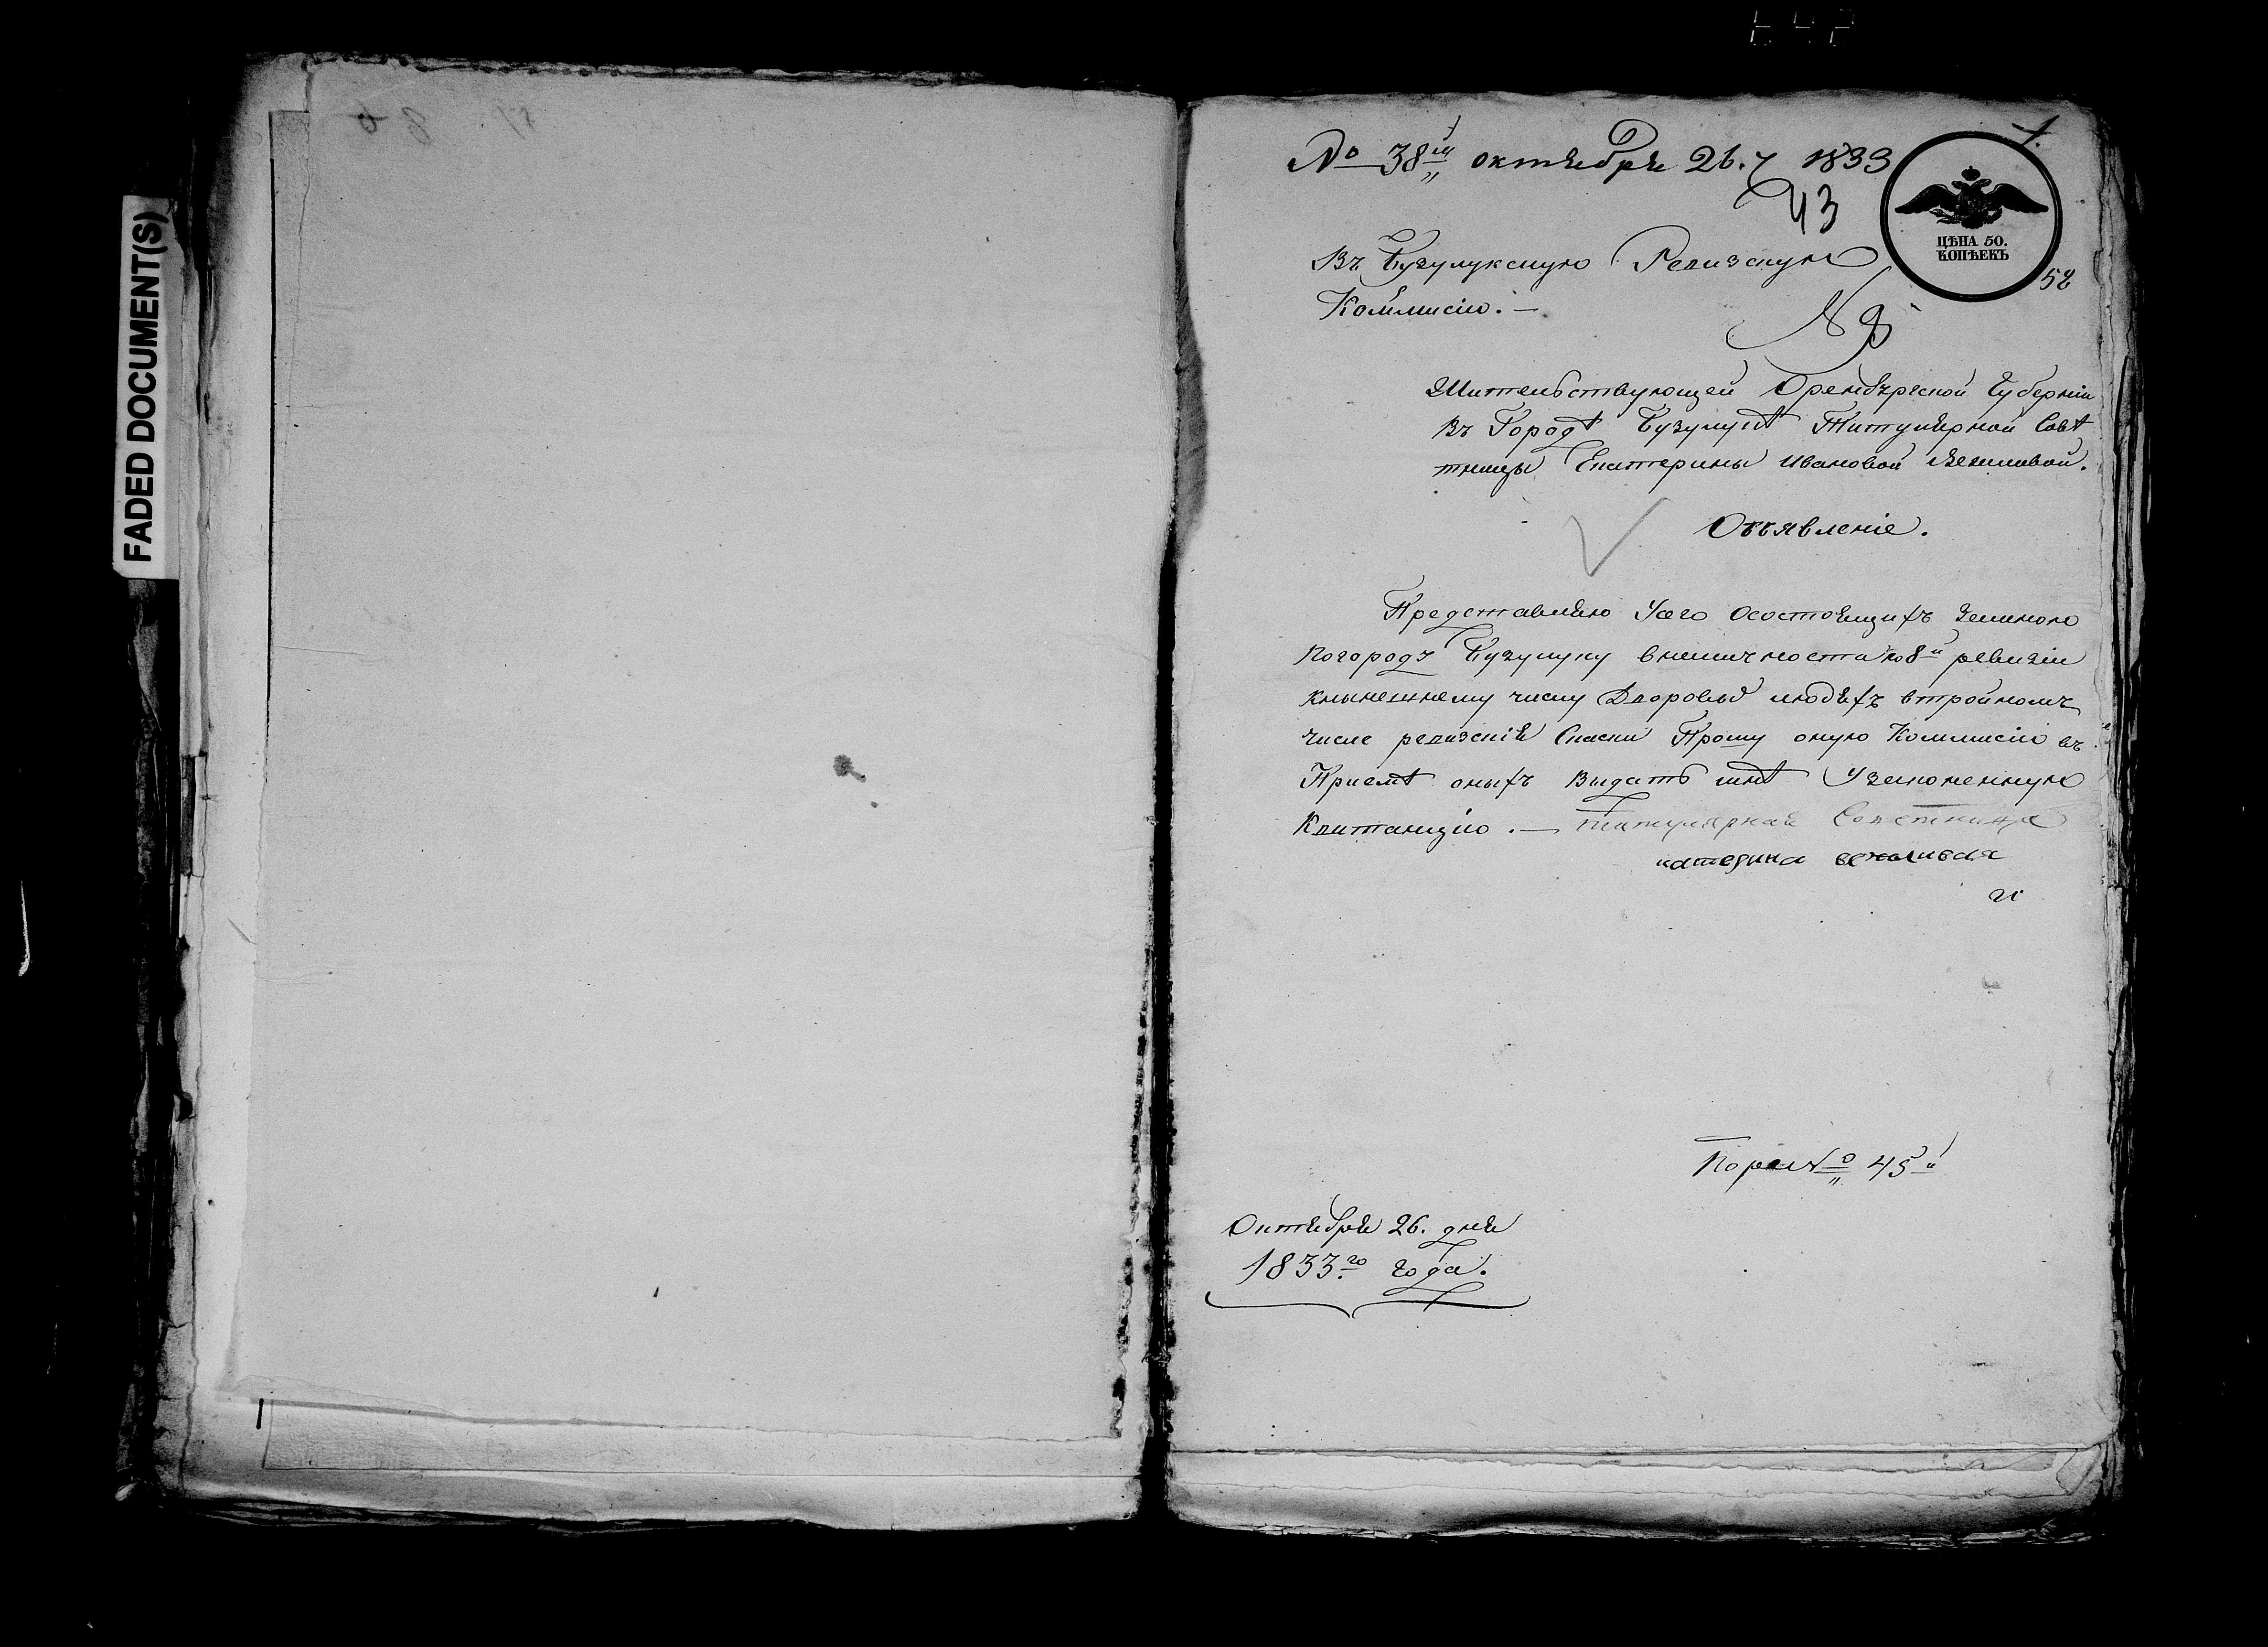 FADED DOCUMENT(S)
№ 38й октября 26. ч 1833
1.
43
ЦѢНА 50.
КОПѢЕКЪ
58
Въ Бузулукскую Ревизскую
Коммисію. —
№ 8
Жительствующей Оренбургской Губерніи
въ Городѣ Бузулукѣ Титулярной Совѣ
тницы Екатерины Ивановой Вежливой.
Объявленіе.
Представляю у сего о состоящихъ за мною
по городу Бузулуку в наличности по 8й ревизіи
к нынешнему числу дворовыхъ людяхъ в тройномъ
числе ревизскія скаски Прошу оную Коммисію въ
Приемѣ оныхъ выдать мнѣ узаконенную
Квитанцію. — титулярная Советница
катерина вежливая
По рее № 45й
Октября 26. дня
1833го года.